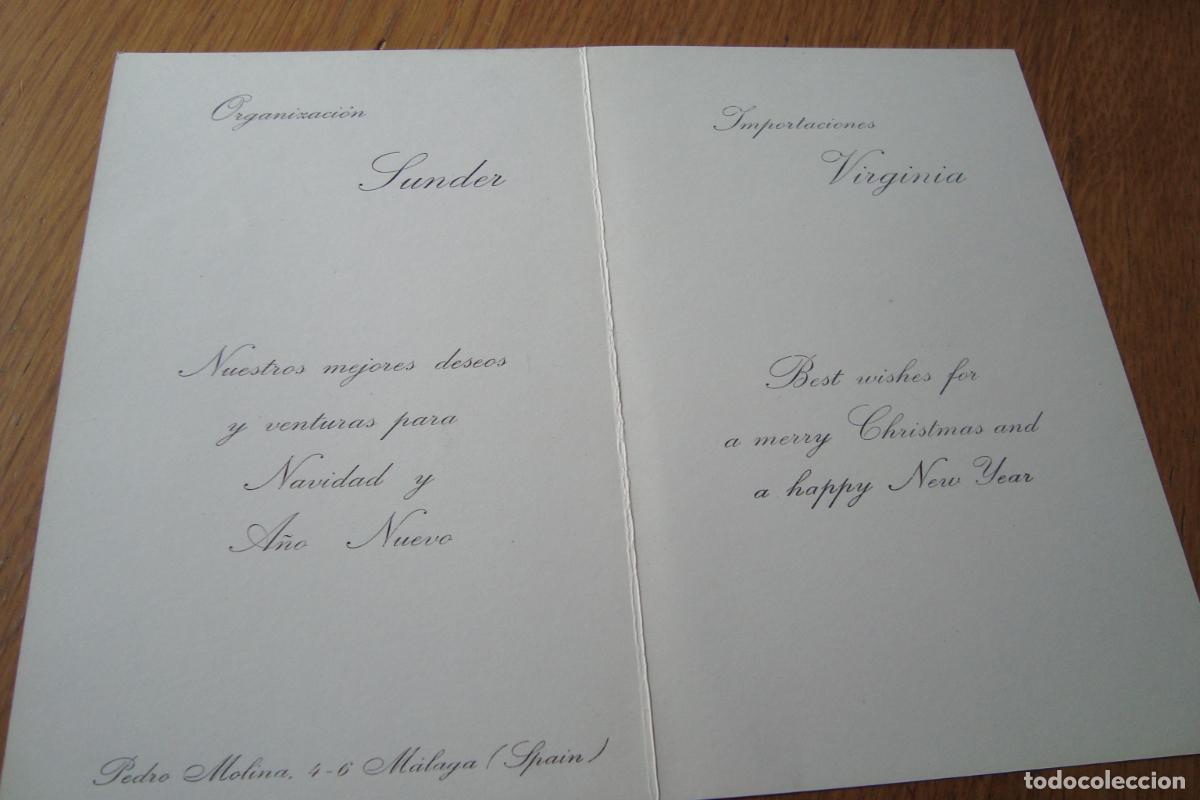 Organización
Sunder
Nuestros mejores deseos
y venturas para
Navidad y
Año Nuevo
Pedro Molina, 4-6 Málaga (Spain)
Importaciones
Virginia
Best wishes for
a merry Christmas and
a happy New Year
todocoleccion